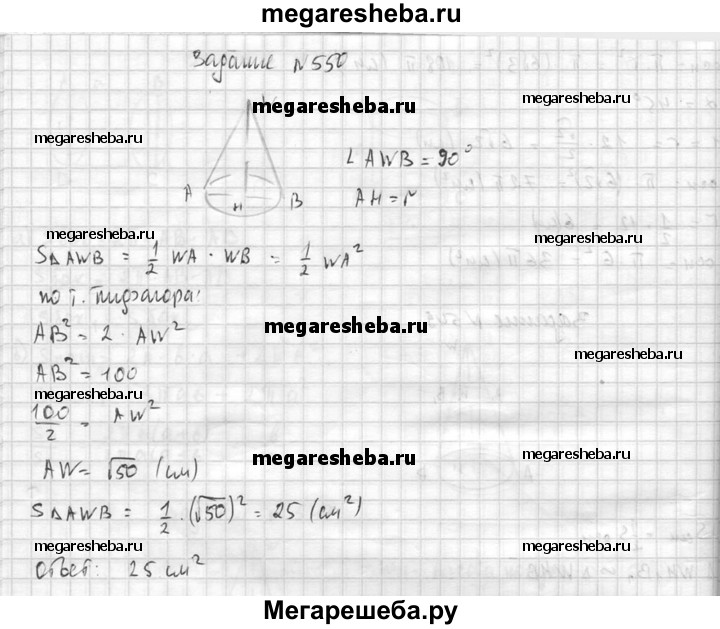 megaresheba.ru
Задание №550
megaresheba.ru
megaresheba.ru
megaresheba.ru
W
∠AWB = 90°
A
H
B
AH = r
megaresheba.ru
megaresheba.ru
S△AWB = 1/2 WA · WB = 1/2 WA²
по т. Пифагора:
megaresheba.ru
AB² = 2 · AW²
megaresheba.ru
AB² = 100
megaresheba.ru
megaresheba.ru
100/2 = AW²
megaresheba.ru
megaresheba.ru
AW = √50 (см)
S△AWB = 1/2 · (√50)² = 25 (см²)
megaresheba.ru
megaresheba.ru
Ответ: 25 см²
Мегарешеба.ру